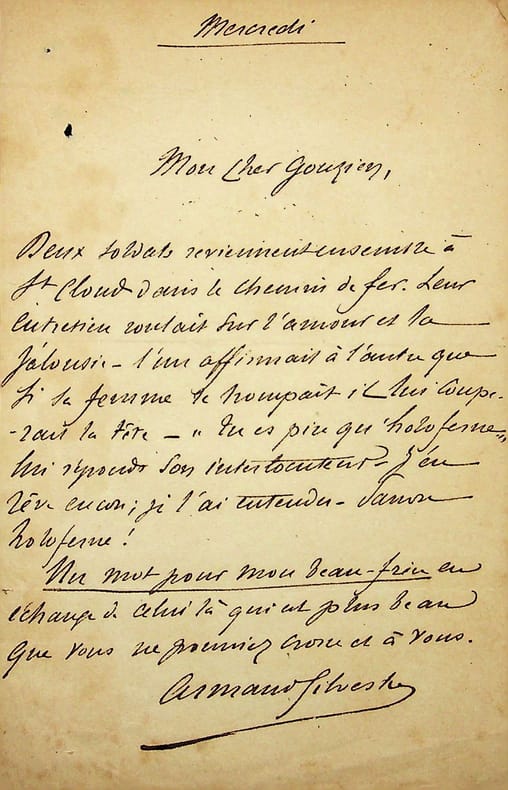 Mercredi
Mon cher Gouzien,
Deux soldats reviennent ensemble à
St Cloud dans le chemin de fer. Leur
entretien roulait sur l'amour et la
jalousie – l'un affirmait à l'autre que
si sa femme le trompait il lui coupe-
-rait la tête – "Tu es pire qu'holoferne"
lui répondit son interlocuteur – J'en
rêve encor; je l'ai entendu –
holoferne!
Un mot pour mon beau-frère en
échange de celui là qui est plus beau
que vous ne pourriez croire et à vous.
Armand Silvestre